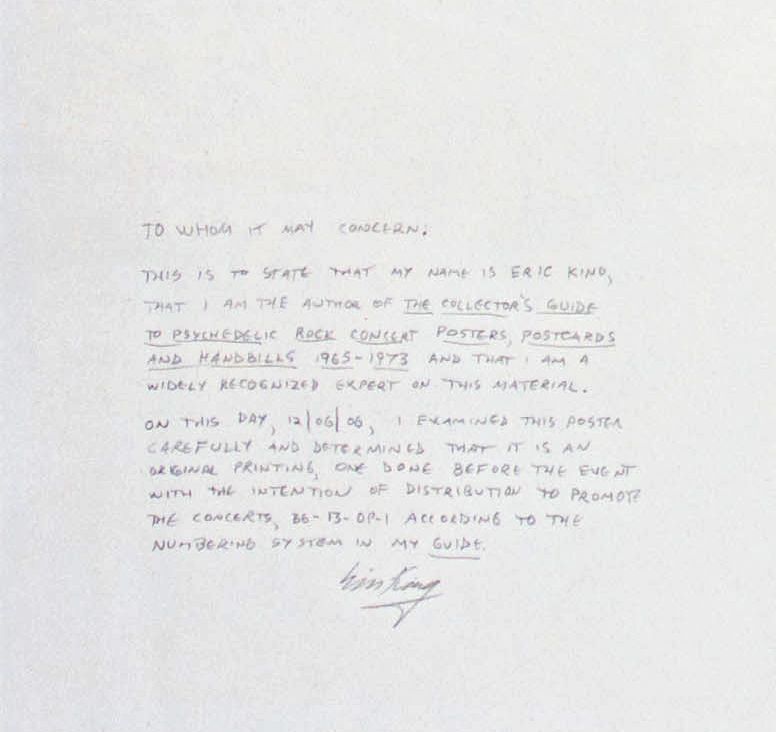 TO WHOM IT MAY CONCERN:
THIS IS TO STATE THAT MY NAME IS ERIC KING,
THAT I AM THE AUTHOR OF THE COLLECTOR'S GUIDE
TO PSYCHEDELIC ROCK CONCERT POSTERS, POSTCARDS
AND HANDBILLS 1965-1973 AND THAT I AM A
WIDELY RECOGNIZED EXPERT ON THIS MATERIAL.
ON THIS DAY, 12/06/06, I EXAMINED THIS POSTER
CAREFULLY AND DETERMINED THAT IT IS AN
ORIGINAL PRINTING, ONE DONE BEFORE THE EVENT
WITH THE INTENTION OF DISTRIBUTION TO PROMOTE
THE CONCERTS, BG-13-OP-1 ACCORDING TO THE
NUMBERING SYSTEM IN MY GUIDE.
Eric King